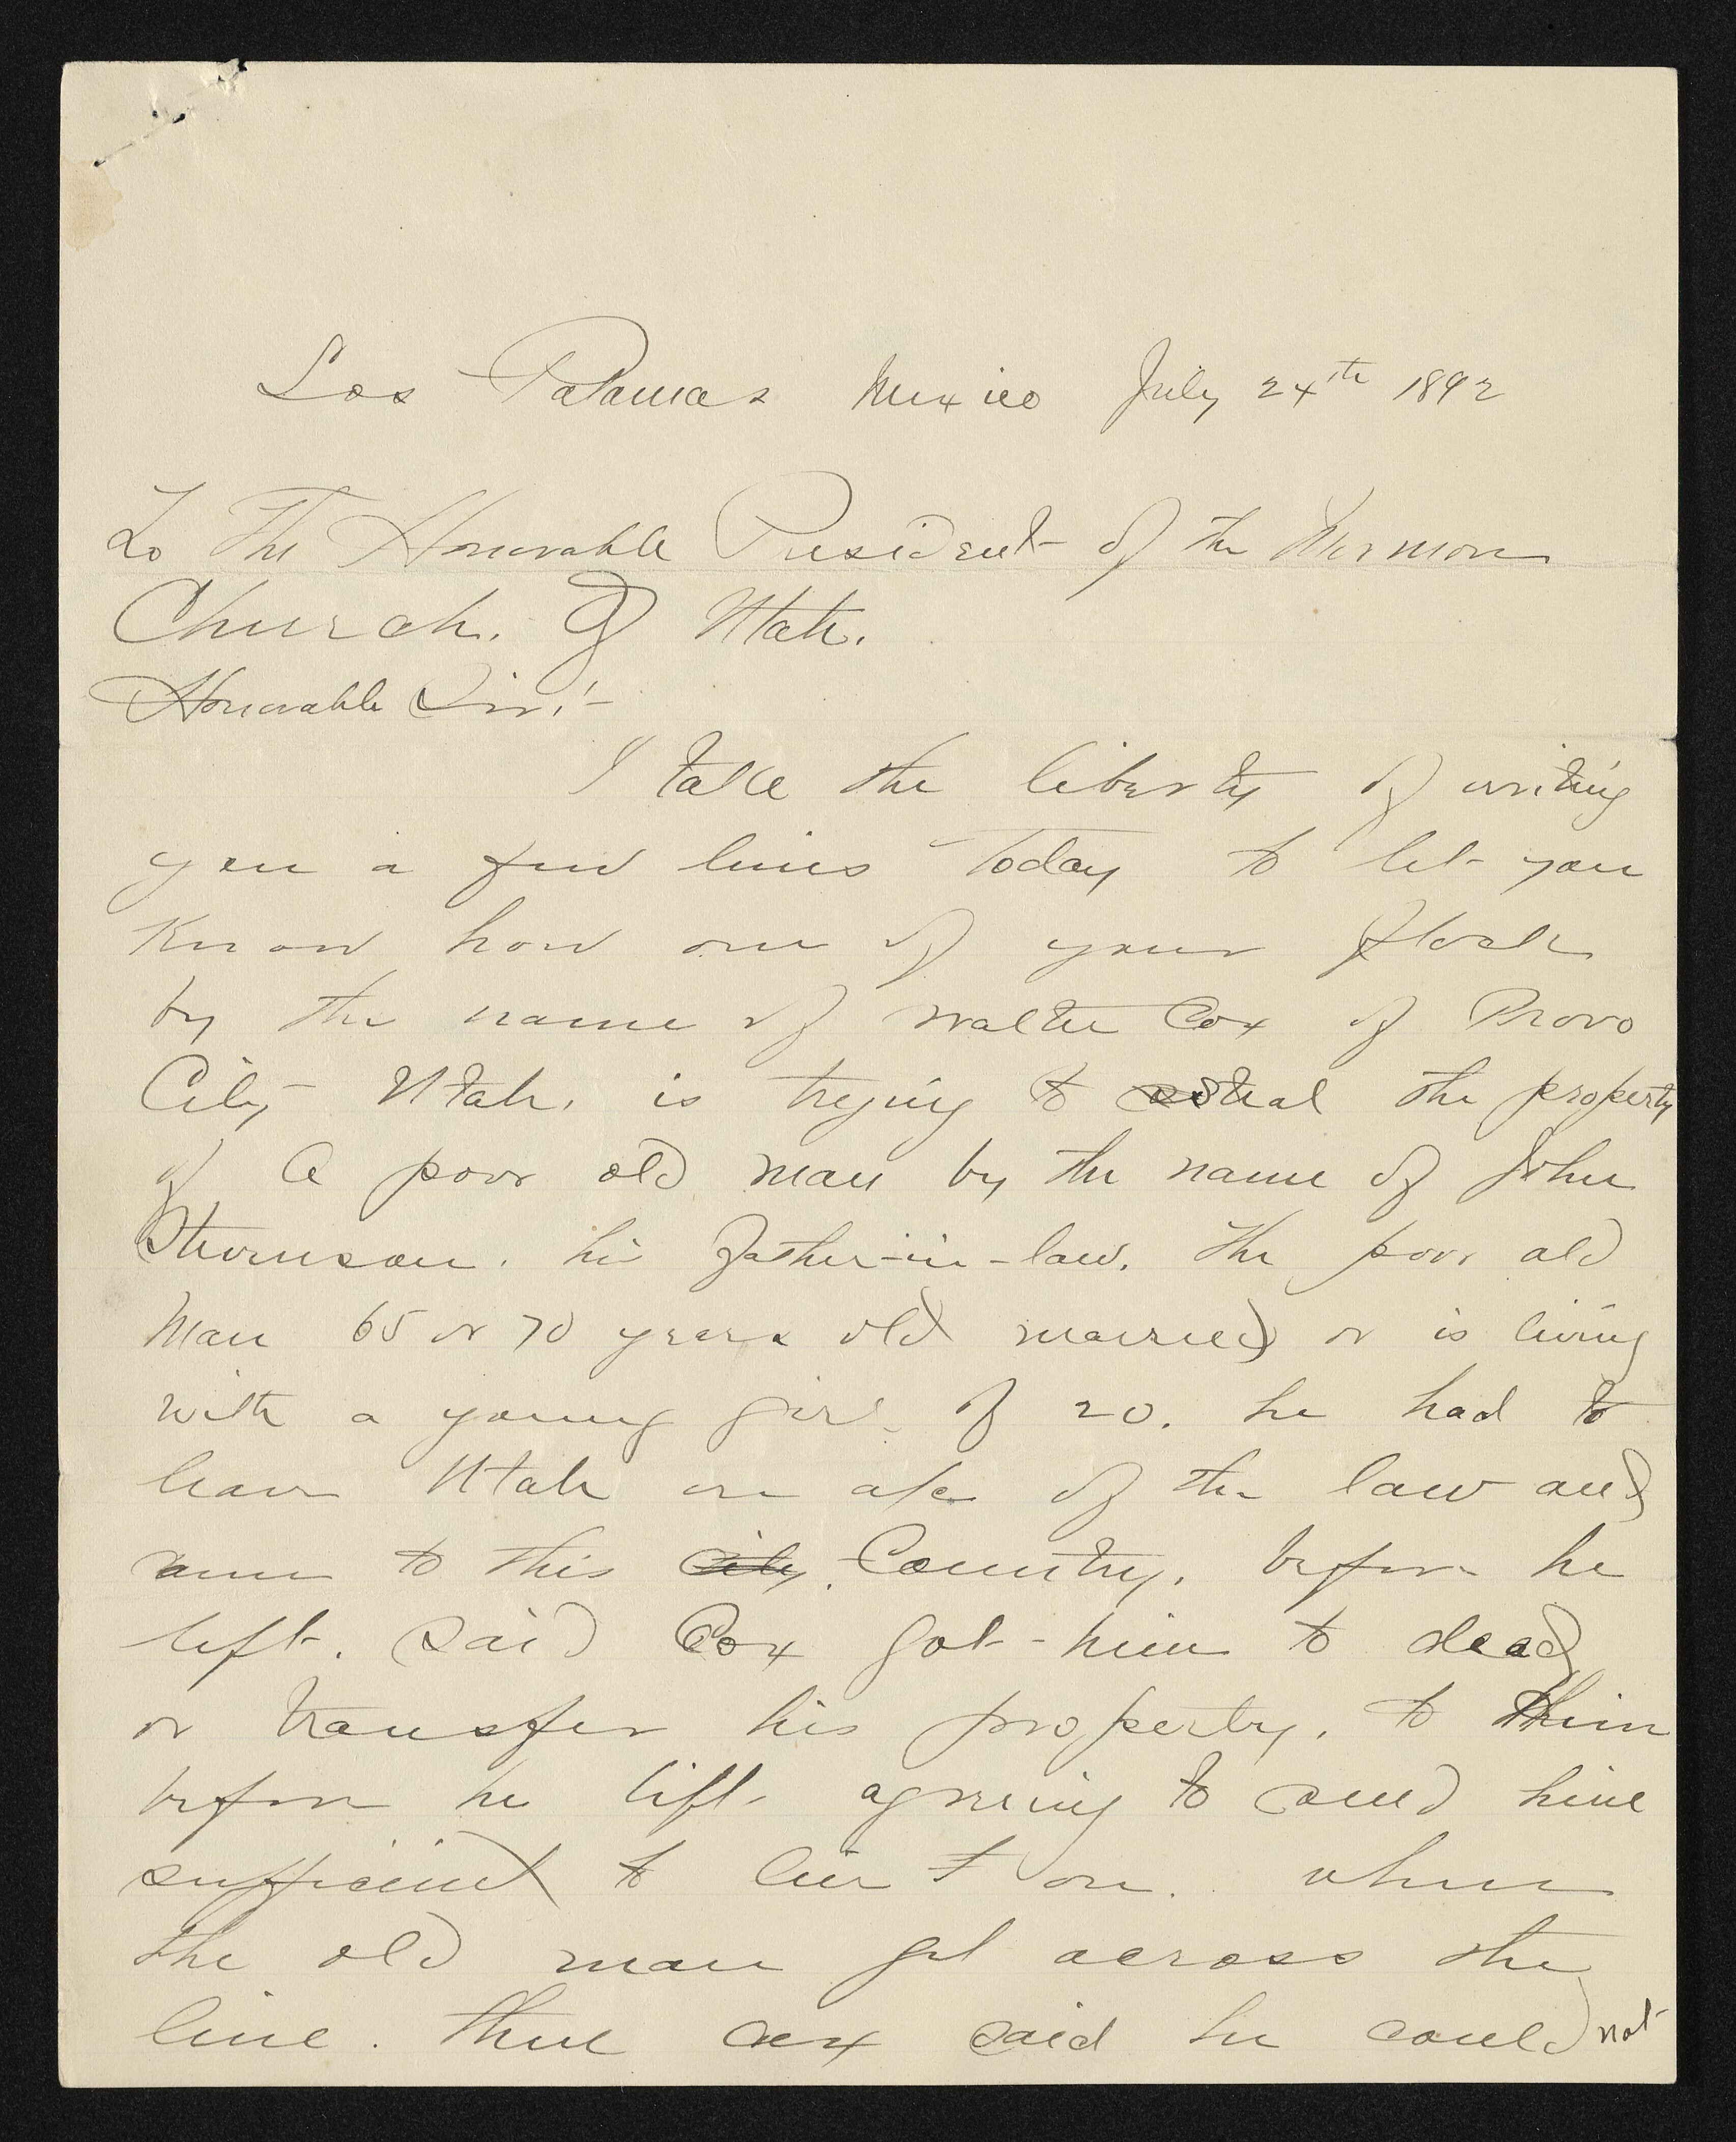 Los Palamas Mexico July 24th 1892
To The Honorable President of the Mormon
Church. Of Utah.
Honorable Sir!-
I take the liberty of writing
you a few lines Today to let you
Know how one of your flock
by the name of Walter Cox of Provo
City Utah. is trying to steal the property
of A poor old man by the name of John
his father-in-law. The poor old
Man 65 or 70 years old married or is living
with a young girl of 20. he had to
leave Utah on a/c of the law and
came to this City. Country. before he
left. Said Cox got him to dead
or transfer his property. to him
before he left. agreeing to send him
sufficient to live on. when
the old man got across the
line. then Cox said he could not